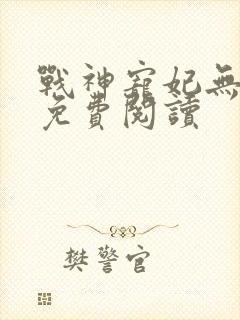 戰神寵妃無
免費閱讀
樊警官